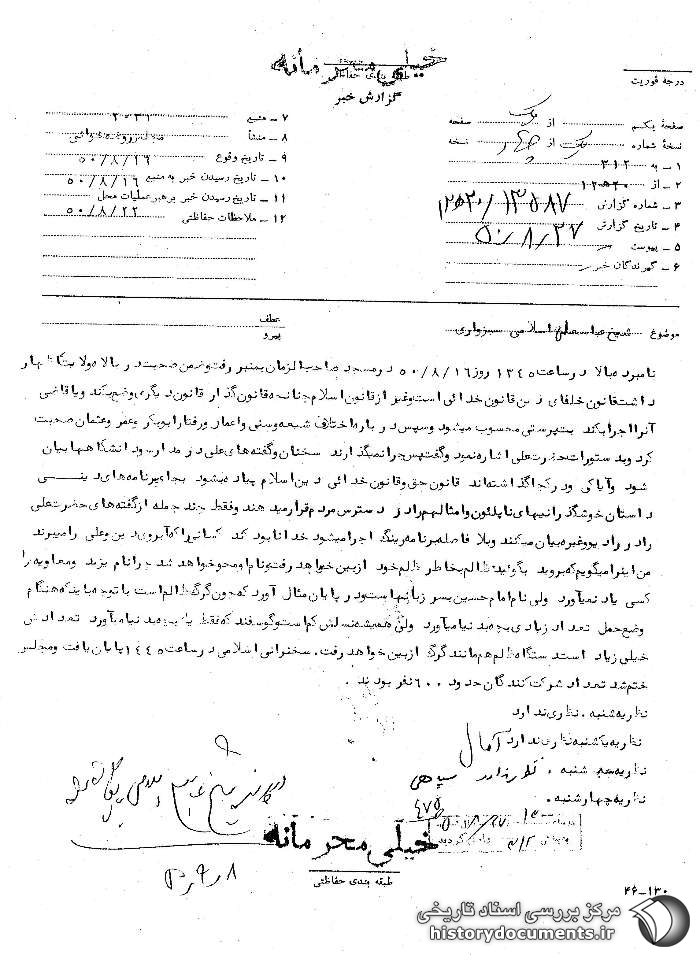 خیلی محرمانه
طبقه بندی حفاظتی
گزارش خبر
درجه فوریت
صفحهٔ یکم از یک صفحه
نسخهٔ شماره یک از چهار نسخه
۱ ـ به ۳۱۲
۲ ـ از
۳ ـ شماره گزارش
۴ ـ تاریخ گزارش ۵۰/۸/۲۷
۵ ـ پیوست
۶ ـ گیرندگان خبر
۷ ـ منبع ۲۰۳۱
۸ ـ منشأ
۹ ـ تاریخ وقوع ۵۰/۸/۱۶
۱۰ ـ تاریخ رسیدن خبر به منبع ۵۰/۸/۱۶
۱۱ ـ تاریخ رسیدن خبر برهبر عملیات محل ۵۰/۸/۲۲
۱۲ ـ ملاحظات حفاظتی
موضوع شیخ عباسعلی اسلامی سبزواری
عطف
پیرو
نامبرده بالا در ساعت ۱۳۴۵ روز ۵۰/۸/۱۶ در مسجد صاحب الزمان بمنبر رفت وضمن صحبت در بالا مولا بیتگا اظهار
داشت قانون خلفای دین قانون خدائی است وغیر از قانون اسلام چنانچه قانون گذار قانون دیگری وضع کند ویا قاضی
آنرا اجرا کند بت پرستی محسوب میشود وسپس در باره اختلاف شیعه وسنی واعمار ورفتار ابوبکر وعمر وعثمان صحبت
کرد وبدستورات حضرت علی اشاره نمود وگفت پس چرا نمیگذارند سخنان وگفته های علی در مدارس ودانشگاهها بیان
شود وآیا کی ودر کجا گذاشته اند قانون حق وقانون خدائی دین اسلام پیاده بشود بجای برنامه های دینی
داستان خوشگذرانیهای ناپلئون وامثالهم را در دسترس مردم قرار میدهند وفقط چند جمله از گفته های حضرت علی
را در رادیو وغیره بیان میکنند وبلافاصله برنامه رینگ اجرا میشود خدا نابود کند کسانی را که آبروی دین وعلی را میبرند
من اینرا میگویم که بروید بگوئید ظالم بخاطر ظلم خود از بین خواهد رفت ونام او محو خواهد شد چرا نام یزید ومعاویه را
کسی یاد نمیآورد ولی نام امام حسین بر سر زبانها است ودر پایان مثال آورد که چون گرگ ظالم است با توجه باینکه هنگام
وضع حمل تعداد زیادی بچه بدنیا میآورد ولی همیشه نسلش کم است وگوسفند که فقط یک بچه بدنیا میآورد تعدادش
خیلی زیاد است دستگاه ظلم هم مانند گرگ از بین خواهد رفت. سخنرانی اسلامی در ساعت ۱۴۴۵ پایان یافت ومجلس
ختم شد تعداد شرکت کنندگان حدود ۶۰۰ نفر بودند.
نظریه شنبه . نظری ندارد
نظریه یکشنبه نظری ندارد آمال
نظریه سه شنبه .
نظریه چهارشنبه .
خیلی محرمانه
طبقه بندی حفاظتی
۴۶-۱۳۰
مرکز بررسی اسناد تاریخی
historydocuments.ir